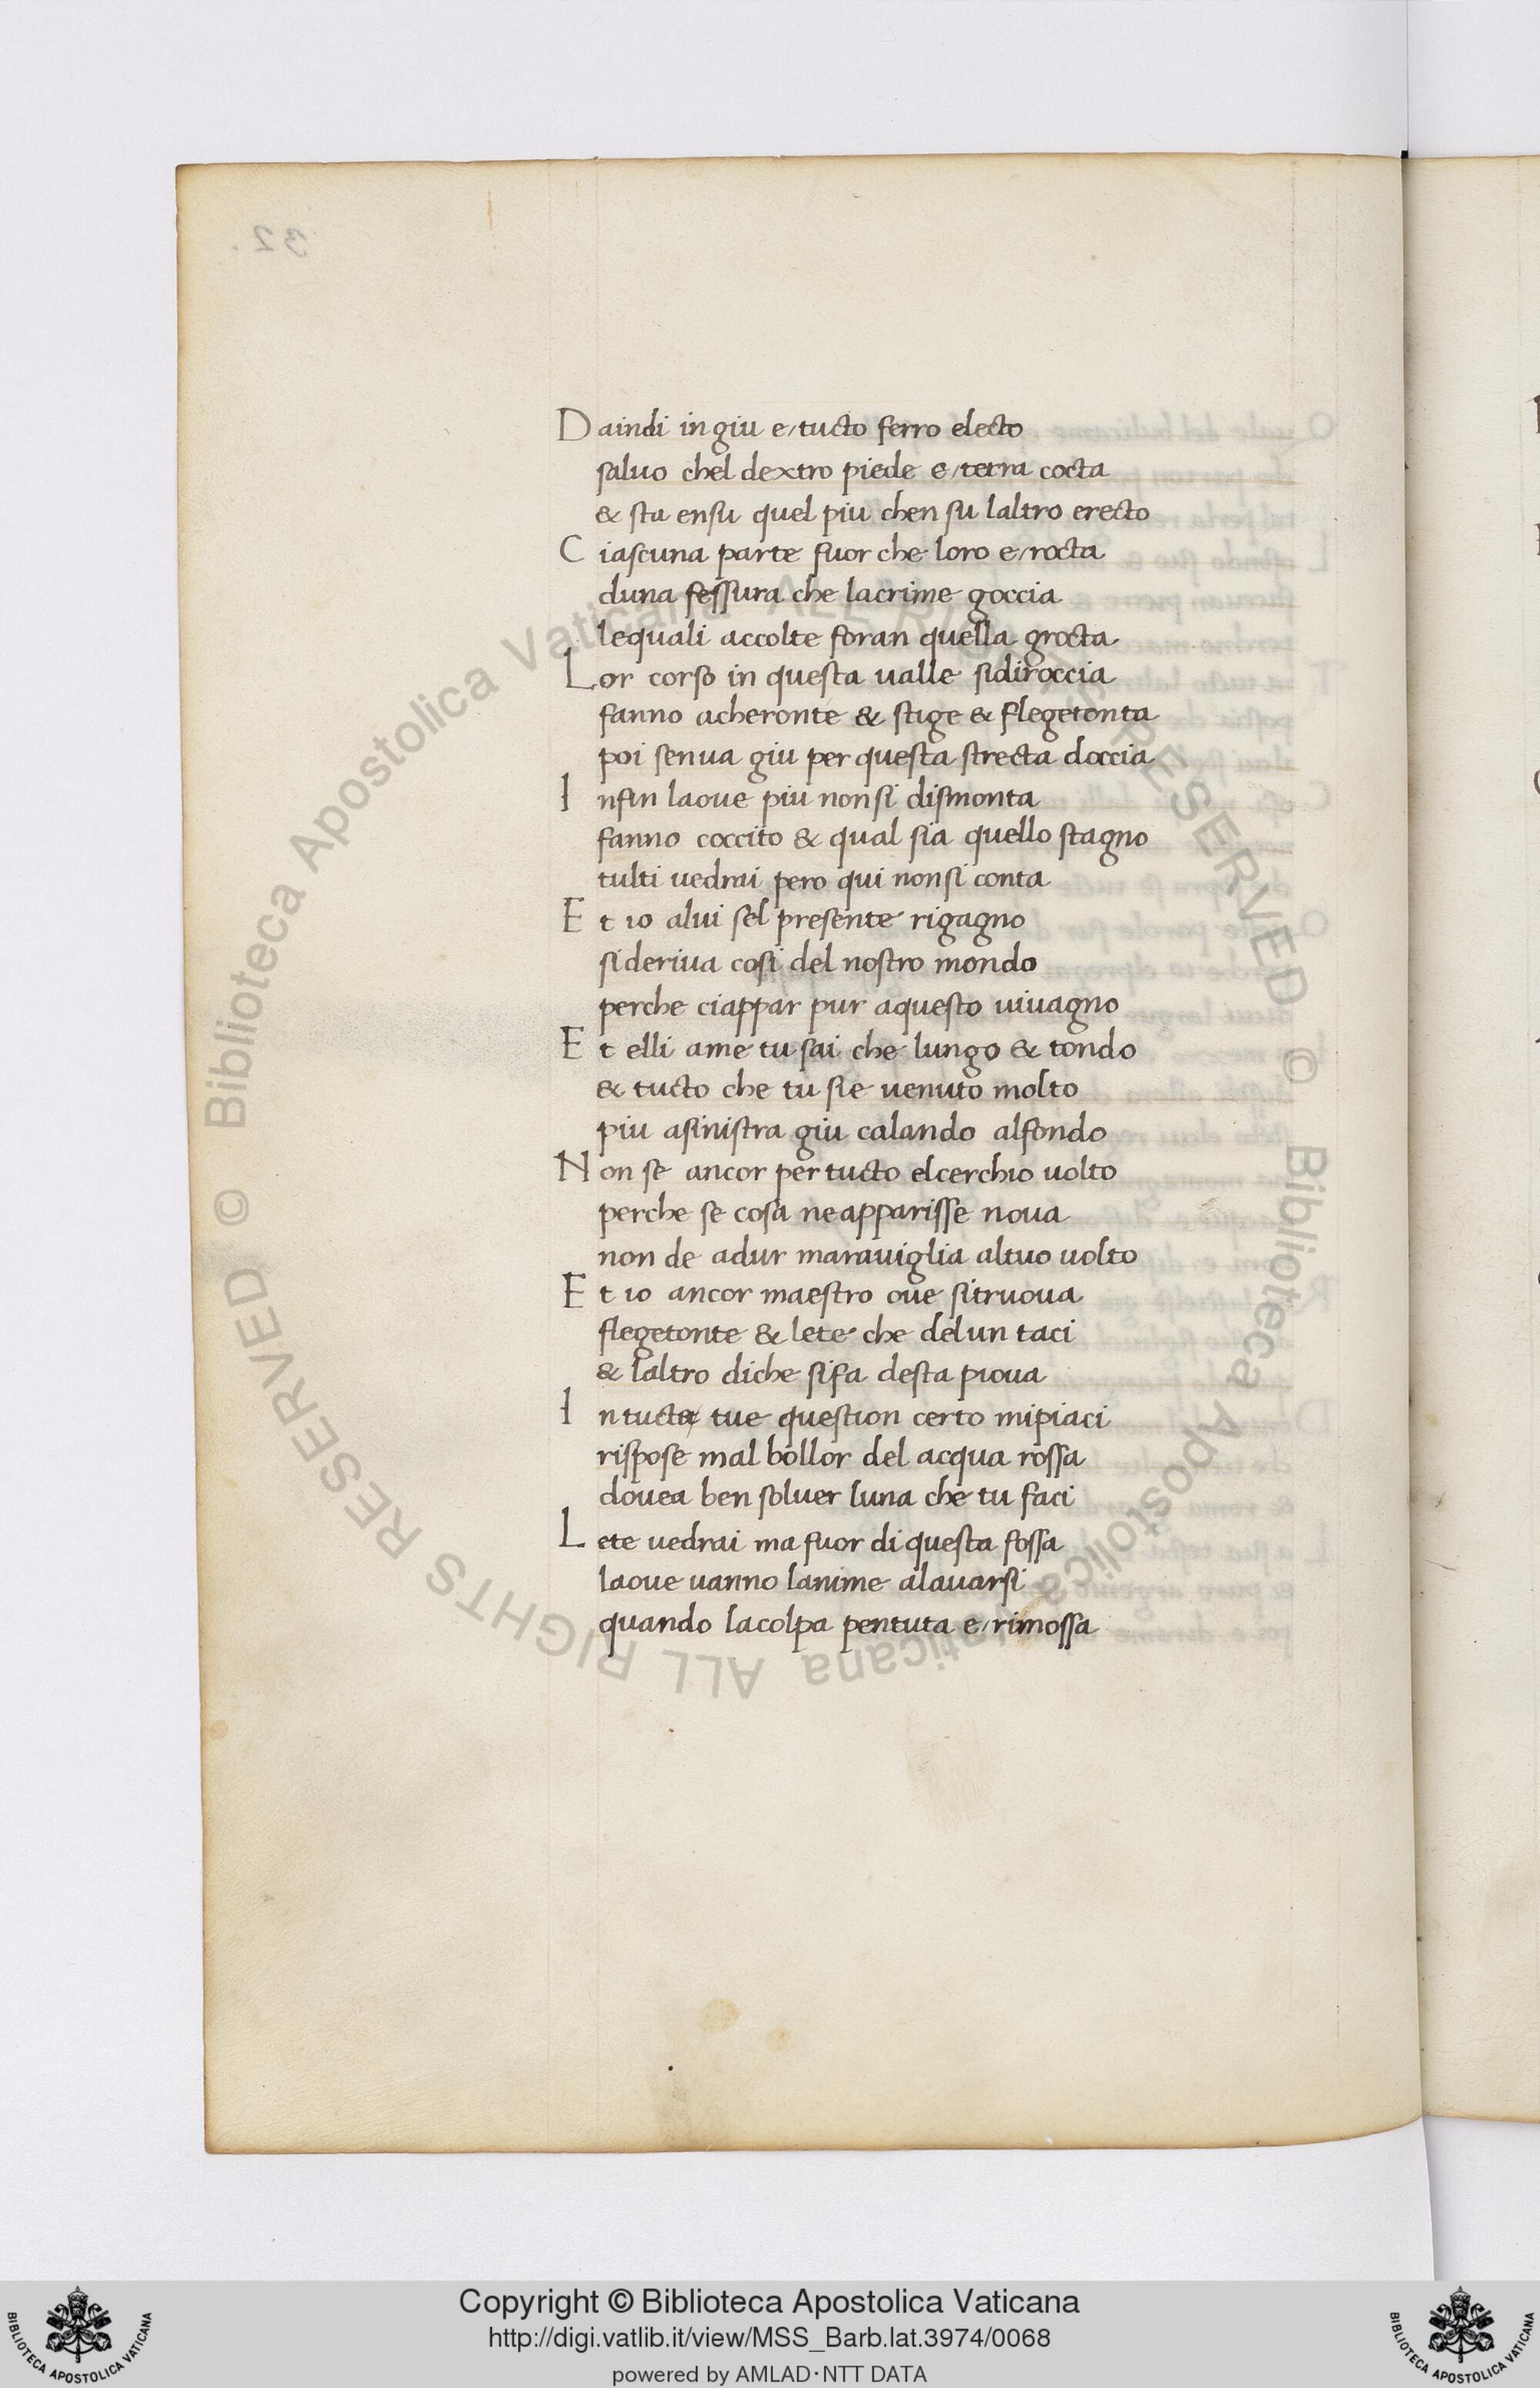 Daindi in giu e/tucto ferro electo
saluo chel dextro piede e/terra cocta
& sta ensu quel piu chen su laltro erecto
Ciascuna parte fuor che loro e/rocta
duna fessura che lacrime goccia
lequali accolte foran quella grocta
Lor corso in questa ualle sidiroccia
fanno acheronte & stige & flegetonta
poi senua giu per questa strecta doccia
Infin laoue piu non si dismonta
fanno coccito & qual sia quello stagno
tulti uedrai pero qui non si conta
Et io alui sel presente rigagno
si deriua cosi del nostro mondo
perche ciappar pur aquesto uiuagno
Et elli ame tu sai che lungo & tondo
& tucto che tu sie uenuto molto
piu asinistra giu calando alfondo
Non se ancor per tucto elcerchio uolto
perche se cosa ne apparisse noua
non de adur marauiglia altuo uolto
Et io ancor maestro oue sitruoua
flegetonte & lete che delun taci
& laltro diche sifa desta pioua
In tucte tue question certo mipiaci
rispose mal bollor del acqua rossa
douea ben soluer luna che tu faci
Lete uedrai ma fuor di questa fossa
laoue uanno lanime alauarsi
quando lacolpa pentuta e/rimossa
Copyright © Biblioteca Apostolica Vaticana
http://digi.vatlib.it/view/MSS_Barb.lat.3974/0068
powered by AMLAD·NTT DATA